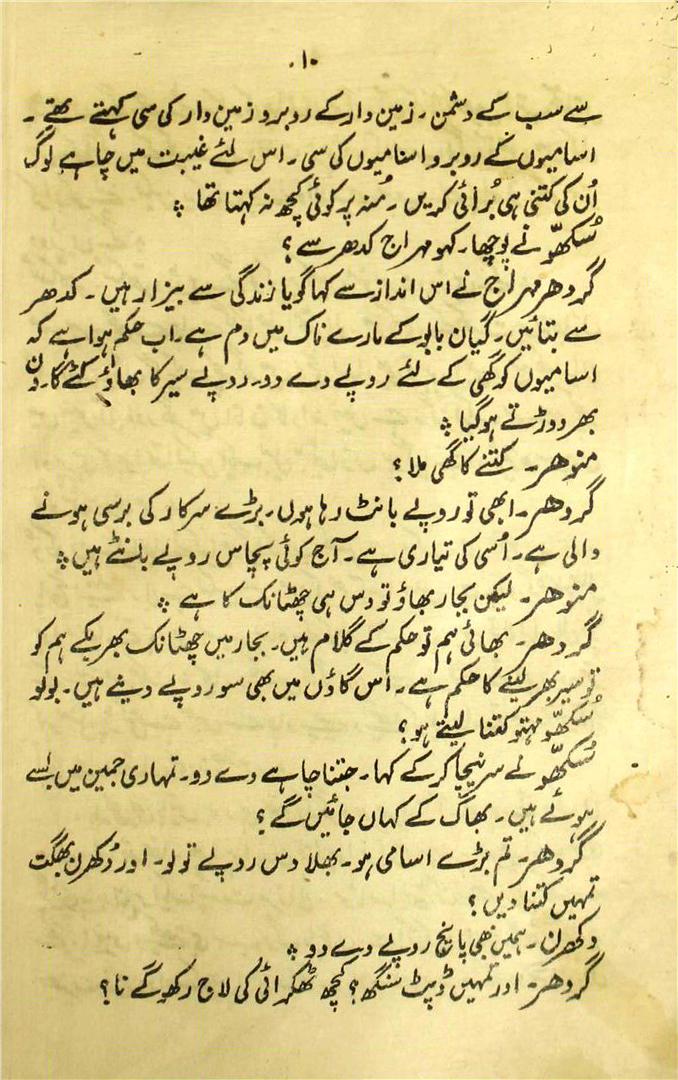 ۱۰
سے سب کے دشمن ۔ زمین دار کے روبرو زمین دار کی سی کہتے تھے ۔
اسامیوں کے روبرو اسامیوں کی سی ۔ اس لئے غیبت میں چاہے لوگ
اُن کی کتنی ہی بُرائی کریں ۔ مُنہ پر کوئی کچھ نہ کہتا تھا ؞
سُکھّو نے پوچھا ۔ کہو مہراج کدھر سے ؟
گردھر مہراج نے اس انداز سے کہا گویا زندگی سے بیزار ہیں ۔ کدھر
سے بتائیں ۔ گیان بابو کے مارے ناک میں دم ہے ۔ اب حکم ہوا ہے کہ
اسامیوں کو گھی کے لئے روپے دے دو ۔ روپے سیر کا بھاؤ کٹے گا ۔ دن
بھر دوڑتے ہو گیا ؞
منوھر ۔ کتنے کا گھی ملا ؟
گردھر ۔ ابھی تو روپے بانٹ رہا ہوں ۔ بڑے سرکار کی برسی ہونے
والی ہے ۔ اُسی کی تیاری ہے ۔ آج کوئی پچاس روپے بانٹے ہیں ؞
منوھر ۔ لیکن بجار بھاؤ تو دس ہی چھٹانک کا ہے ؞
گردھر ۔ بھائی ہم تو حکم کے گلام ہیں ۔ بجار میں چھٹانک بھر بکے ہم کو
تو سیر بھر لینے کا حکم ہے ۔ اس گاؤں میں بھی سو روپے دینے ہیں ۔ بولو
سُکھّو مہتو کتنا لیتے ہو ؟
سُکھّو نے سر نیچا کر کے کہا ۔ جتنا چاہے دے دو ۔ تمہاری جمین میں بسے
ہوئے ہیں ۔ بھاگ کے کہاں جائیں گے ؟
گردھر ۔ تم بڑے اسامی ہو ۔ بھلا دس روپے تو لو ۔ اور دُکھرن بھگت
تمہیں کتنا دیں ؟
دکھرن ۔ ہمیں بھی پانچ روپے دے دو ؞
گردھر ۔ اور تمہیں ڈپٹ سنگھ ؟ کچھ ٹھکرائی کی لاج رکھو گے نا ؟